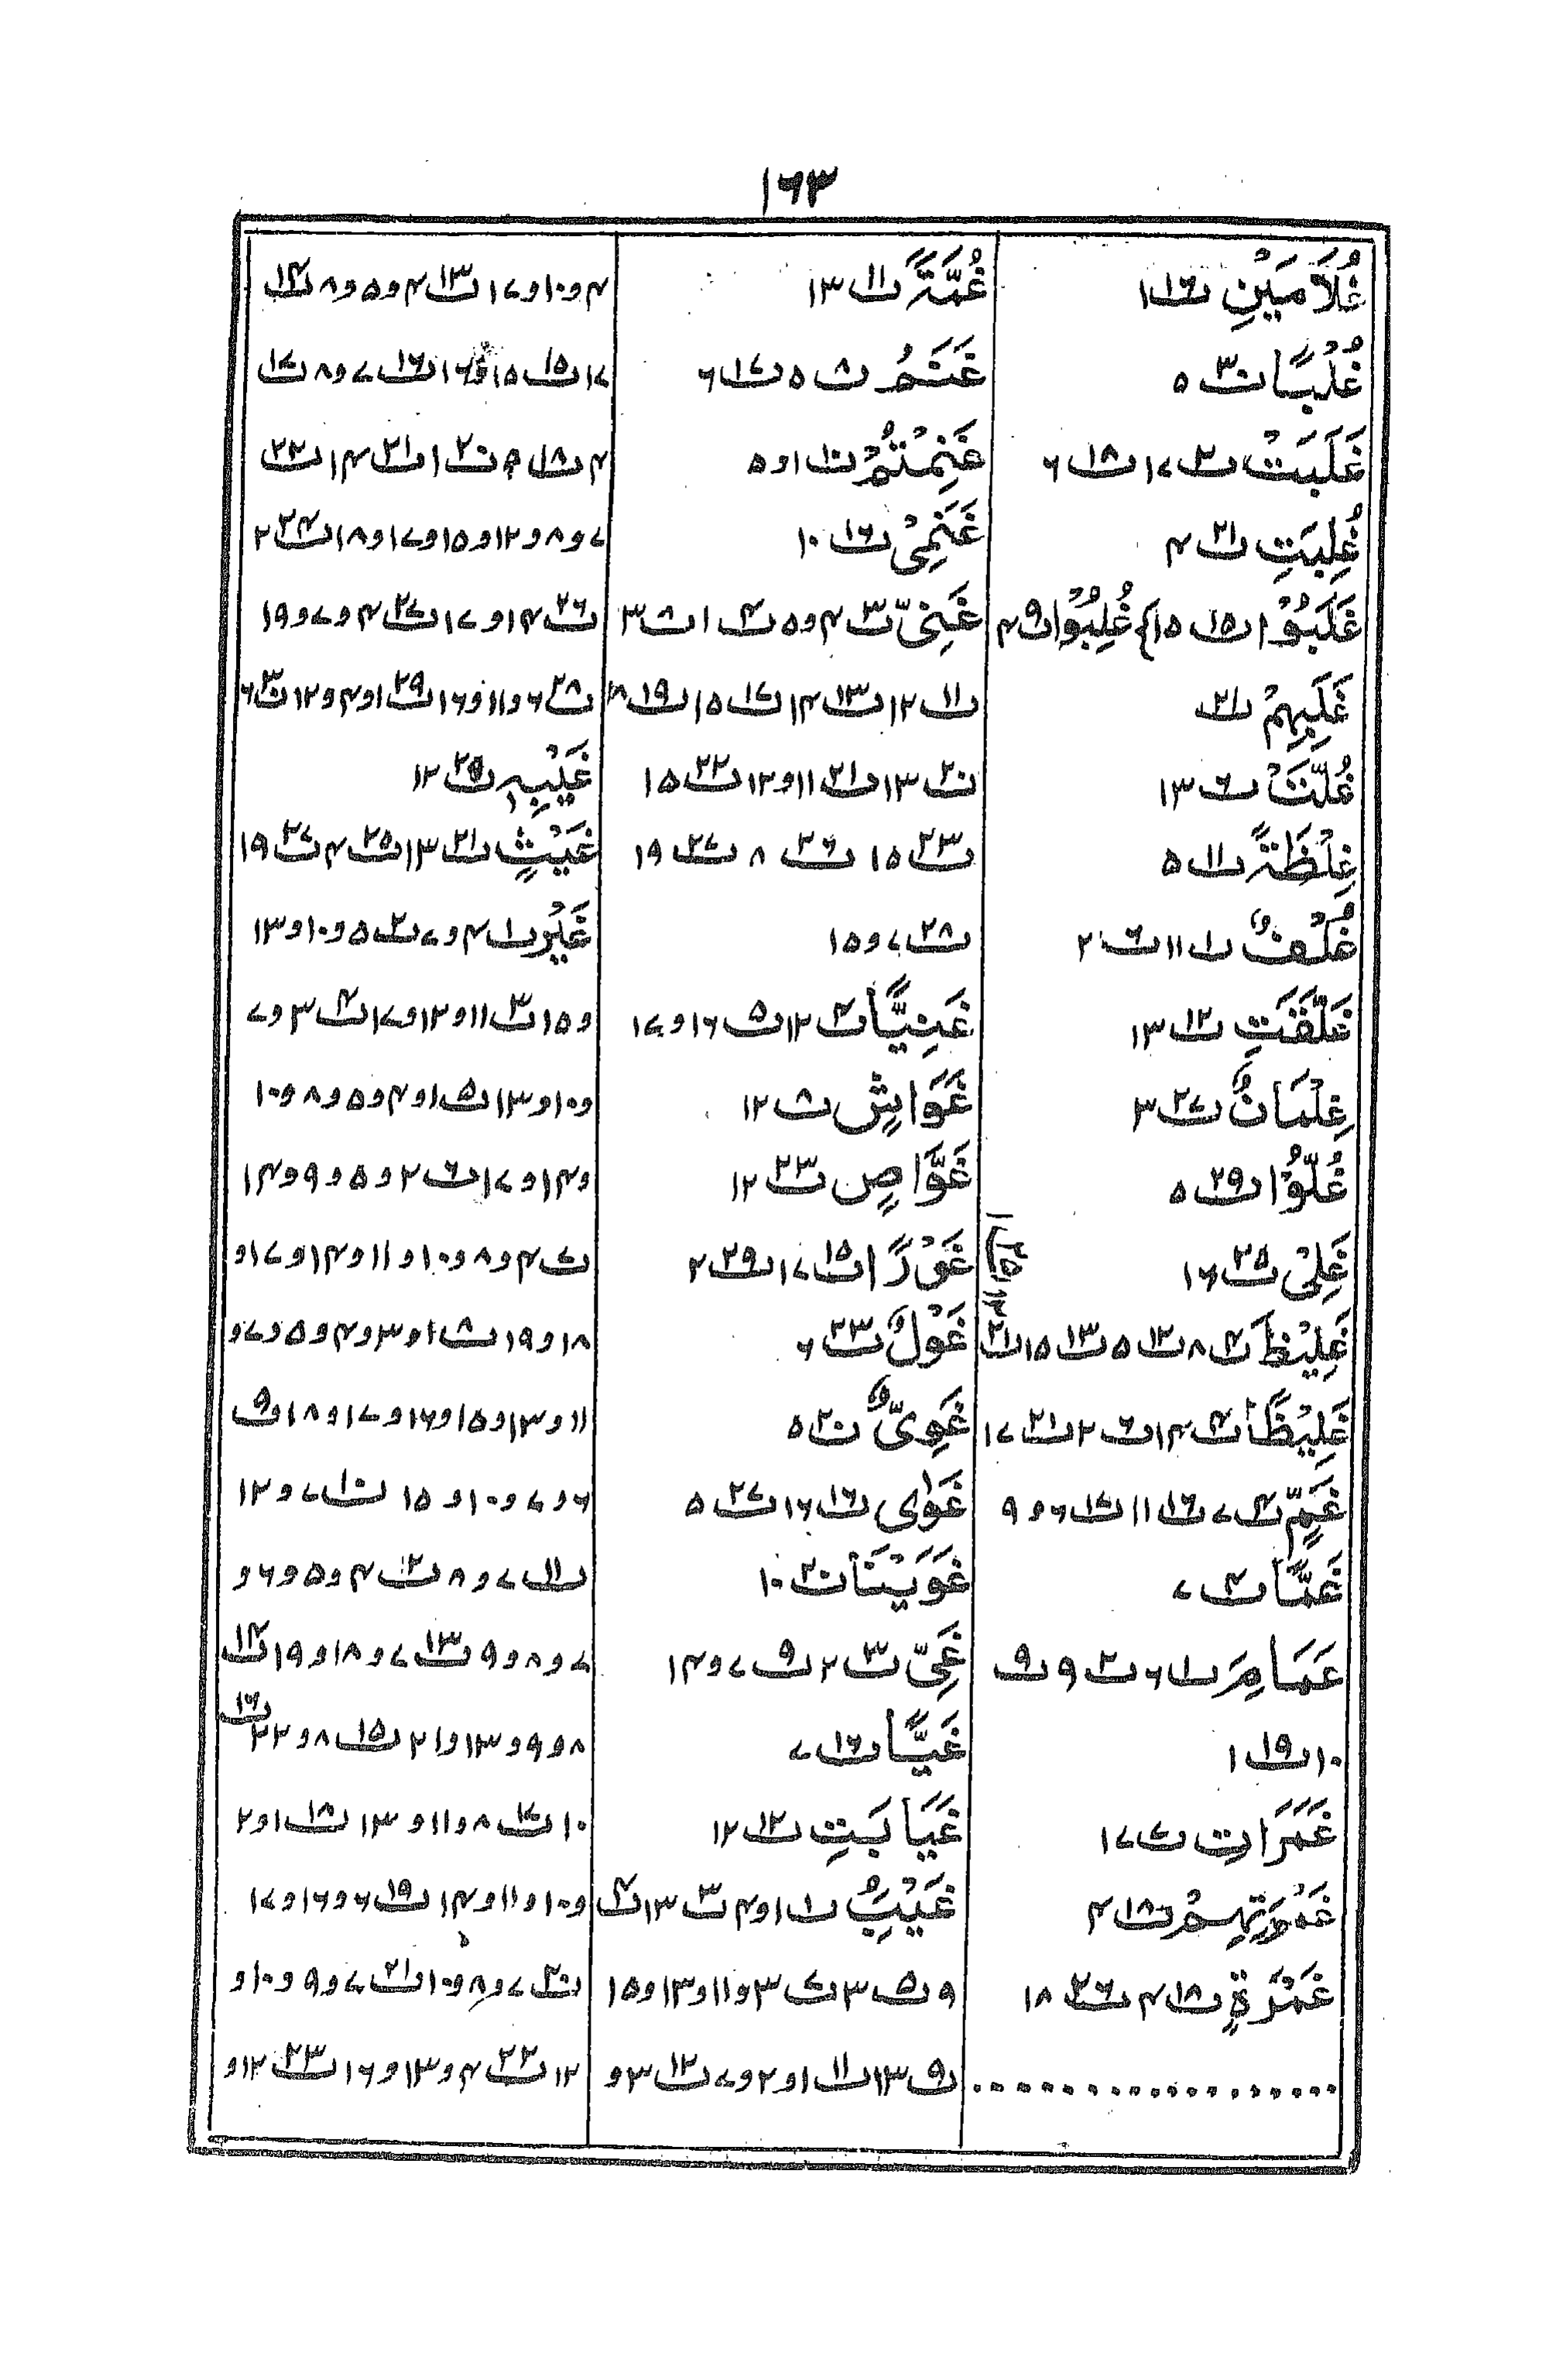 ۱۶۳
غُلَامَیْنِ ت۱۶ ۱
غُلْبًا ت۳۰ ۵
غَلَبَتْ ت۲ ۱۷ ت۱۸ ۶
غُلِبَتِ ت۲۱ ۴
غَلَبُوْا ت۱۵ ۱۵ } غُلِبُوْا ت۹ ۴
غَلَبِهِمْ ت۲۱
غُلَّتْ ت۶ ۱۳
غِلْظَةً ت۱۱ ۵
غُلْفٌ ت۱ ۱۱ ت۶ ۲
غَلَّقَتِ ت۱۲ ۱۳
غِلْمَانٌ ت۲۷ ۳
غُلُّوْا ت۲۹ ۵
غَلِیْ ت۲۵ ۱۶
غَلِیْظَ ت۴ ۸ ت۱۲ ۵ ت۱۳ ۱۵ ت۲۱ ۱۲
غَلِیْظًا ت۴ ۱۴ ت۶ ۲ ت۲۱ ۱۷
غَمٍّ ت۴ ۷ ت۱۶ ۱۱ ت۱۷ ۶ و ۹
غَمًّا ت۴ ۷
غَمَامَ ت۱ ۶ ت۲ ۹ ت۹
۱۰ ت۱۹ ۱
غَمَرَاتِ ت۷ ۱۷
غَمْرَتِهِمْ ت۱۸ ۴
غَمْرَةٍ ت۱۸ ۴ ت۲۶ ۱۸
غُمَّةً ت۱۱ ۱۳
غَنَمُ ت۸ ۵ ت۱۷ ۶
غَنِمْتُمْ ت۱۰ ۱ و ۵
غَنَمِیْ ت۱۶ ۱۰
غَنِیّ ت۳ ۴ و ۵ ت۴ ۱ ت۸ ۳
ت۱۱ ۱۲ ت۱۳ ۱۴ ت۱۷ ۱۵ ت۱۹ ۱۸
ت۲۰ ۱۳ ت۲۱ ۱۱ و ۱۲ ت۲۲ ۱۵
ت۲۳ ۱۵ ت۲۶ ۸ ت۲۷ ۱۹
ت۲۸ ۷ و ۱۵
غَنِیًّا ت۴ ۱۲ ت۵ ۱۶ و ۱۷
غَوَاشٍ ت۸ ۱۲
غَوَّاصٍ ت۲۳ ۱۲
غَوْرًا ت۱۵ ۱۷ ت۲۹ ۲
غَوْلٌ ت۲۳ ۶
غَوِیٌّ ت۲۰ ۵
غَوٰی ت۱۶ ۱۶ ت۲۷ ۵
غَوَیْنَا ت۲۰ ۱۰
غَیّ ت۳ ۲ ت۹ ۷ و ۱۴
غَیًّا ت۱۶ ۷
غَیَابَتِ ت۱۲ ۱۲
غَیْبُ ت۱ ۱ و ۴ ت۳ ۱۳ ت۴
۹ ت۵ ۳ ت۷ ۳ و ۱۱ و ۱۳ و ۱۵
ت۹ ۱۳ ت۱۱ ۱ و ۲ و ۷ ت۱۲ ۳ و
۴ و ۱۰ و ۱۷ ت۱۳ ۴ و ۵ و ۸ ت۱۴
۱۷ ت۱۵ ۱۵ و ۱۶ ت۱۶ ۷ و ۸ ت۱۷
۴ ت۱۸ ۹ ت۲۰ ۱ ت۲۱ ۱۴ ت۲۲
۷ و ۸ و ۱۲ و ۱۵ و ۱۷ و ۱۸ ت۲۴ ۲
ت۲۶ ۱۴ و ۱۷ ت۲۷ ۴ و ۷ و ۱۹
ت۲۸ ۶ و ۱۱ و ۱۶ ت۲۹ ۱ و ۴ و ۱۲ ت۳۰ ۶
غَیْبِهٖ ت۲۹ ۱۲
غَیْثٍ ت۲۱ ۱۳ ت۲۵ ۴ ت۲۷ ۱۹
غَیْرِ ت۱ ۴ و ۷ ت۲ ۵ و ۱۰ و ۱۳
و ۱۵ ت۳ ۱۱ و ۱۲ و ۱۷ ت۴ ۳ و ۷
و ۱۰ و ۱۳ ت۵ ۱ و ۴ و ۵ و ۸ و ۱۰
و ۱۴ و ۱۷ ت۶ ۲ و ۵ و ۹ و ۱۴
ت۷ ۴ و ۸ و ۱۰ و ۱۱ و ۱۴ و ۱۷ و
۱۸ و ۱۹ ت۸ ۱ و ۳ و ۴ و ۵ و ۷ و
۱۱ و ۱۳ و ۱۵ و ۱۶ و ۱۷ و ۱۸ ت۹
۶ و ۷ و ۱۰ و ۱۵ ت۱۰ ۷ و ۱۲
ت۱۱ ۷ و ۸ ت۱۲ ۴ و ۵ و ۶ و
۷ و ۸ و ۹ ت۱۳ ۷ و ۱۸ و ۱۹ ت۱۴
۸ و ۹ و ۱۳ و ۲۱ ت۱۵ ۸ و ۲۲ ت۱۶
۱۰ ت۱۷ ۸ و ۱۱ و ۱۳ ت۱۸ ۱ و ۲
و ۱۰ و ۱۱ و ۱۴ ت۱۹ ۶ و ۱۶ و ۱۷
ت۲۰ ۷ و ۸ و ۱۰ ت۲۱ ۷ و ۹ و ۱۰ و
۱۲ ت۲۲ ۴ و ۱۳ و ۱۶ ت۲۳ ۱۲ و